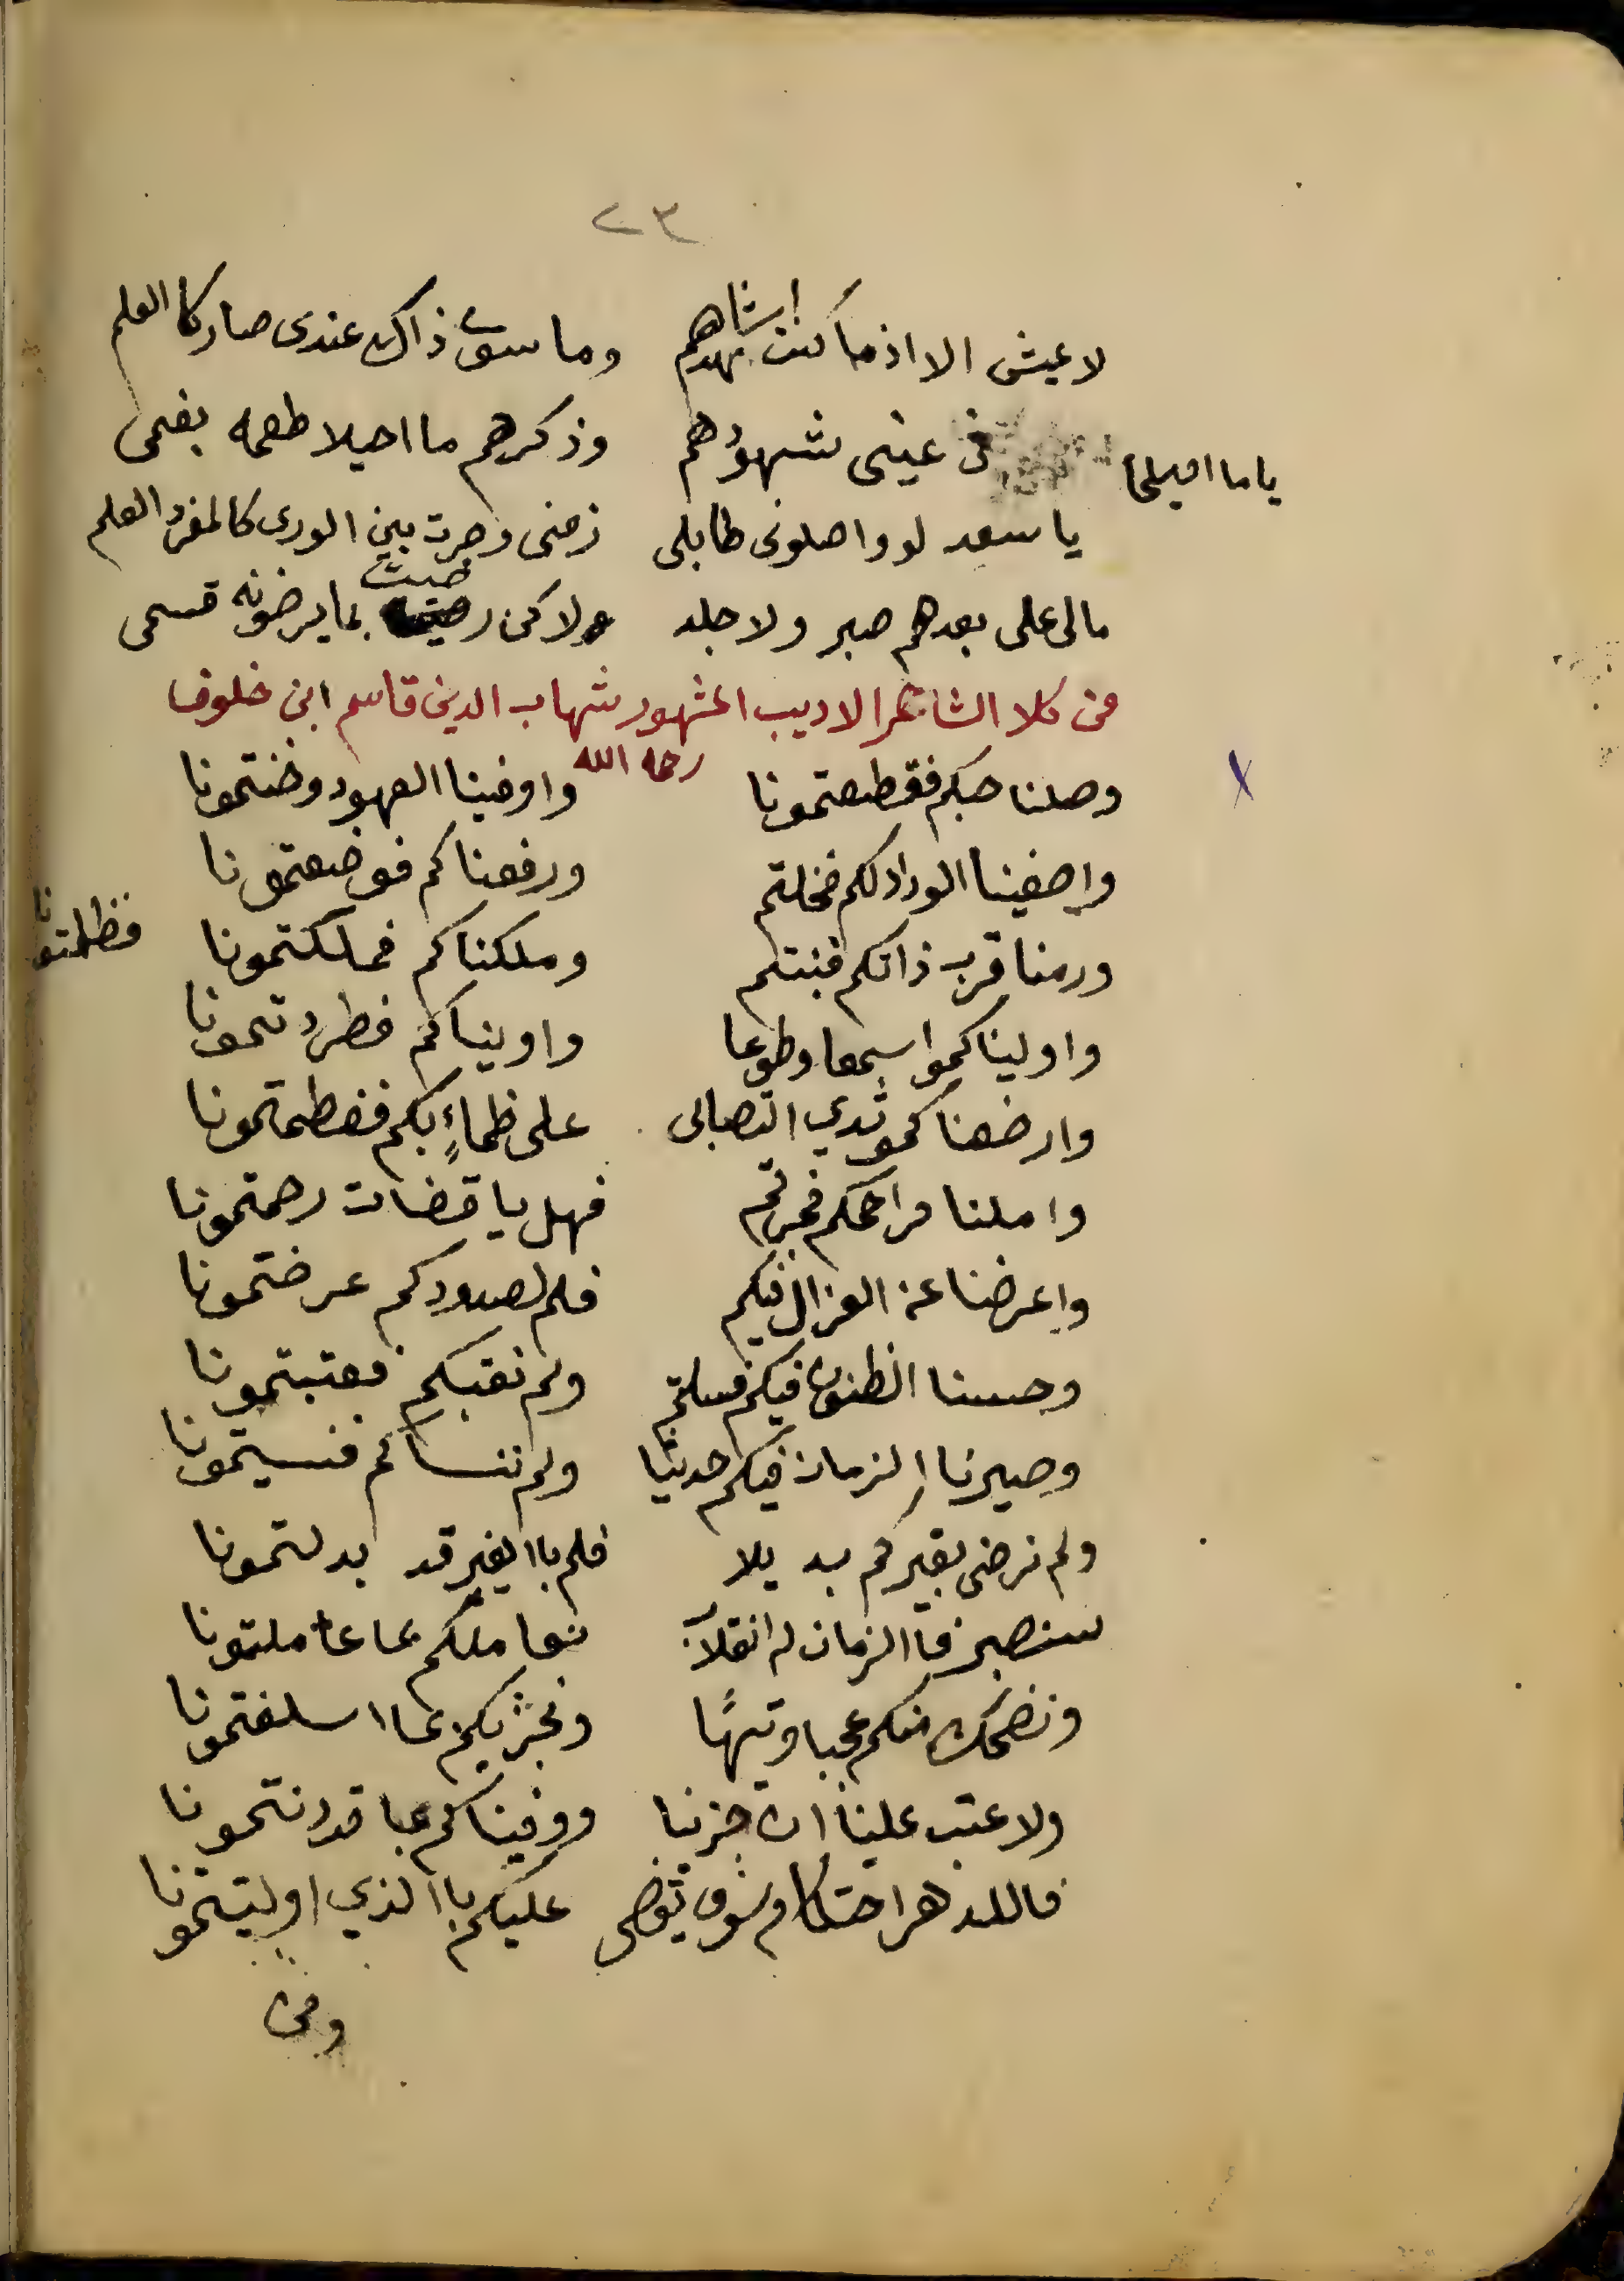 ٢٣
لا عيش الا اذ ما كنت اشاهدهم وما سوى ذاك عندى صار كا العلم
ياما اميلحا فى عينى شهودهم وذكرهم ما احيلا طعمه بفمى
يا سعد لو واصلونى طابلى زمنى وصرت بين الورى كالمفرد العلم
مالى على بعدهم صبر ولا جلد ولاكن رضيت بما يرضونه قسمى
من كلا الشاعر الاديب المشهور شهاب الدين قاسم ابن خلوف
رحمه الله
وصلنا حبكم فقطعتمونا واوفينا العهود وخنتمونا
واصفينا الوداد لكم فخلتم ورفعناكم فوضعتمونا
ورمنا قرب ذاتكم فبنتم وملكناكم فملكتمونا فظلمتونا
واوليناكموا سمعا وطوعا واويناكم فطردتمونا
وارضعناكمو ثدي التصابى على ظماءٍ بكم ففطمتمونا
واملنا مراحمكم فجرتم فهل يا قضات رحمتمونا
واعرضنا عن الغزال فيكم فلم لصدودكم عرضتمونا
وحسنا الظنون فيكم فملتم ولم نعتبكم فعتبتمونا
وصيرنا الزمان فيكم حديثا ولم ننساكم فنسيتمونا
ولم نرضى بغيركم بديلا فلم باالغير قد بدلتمونا
سنصبر فاالزمان له انقلاب نعاملكم بما عاملتمونا
ونضحك منكم عجبا وتيهًا ونجزيكم بما اسلفتمونا
ولا عتب علينا ان جزينا ووفيناكم بما قد دنتمونا
فاللدهر احتكام وسوف يقضى عليكم باالذي اوليتمونا
ومن